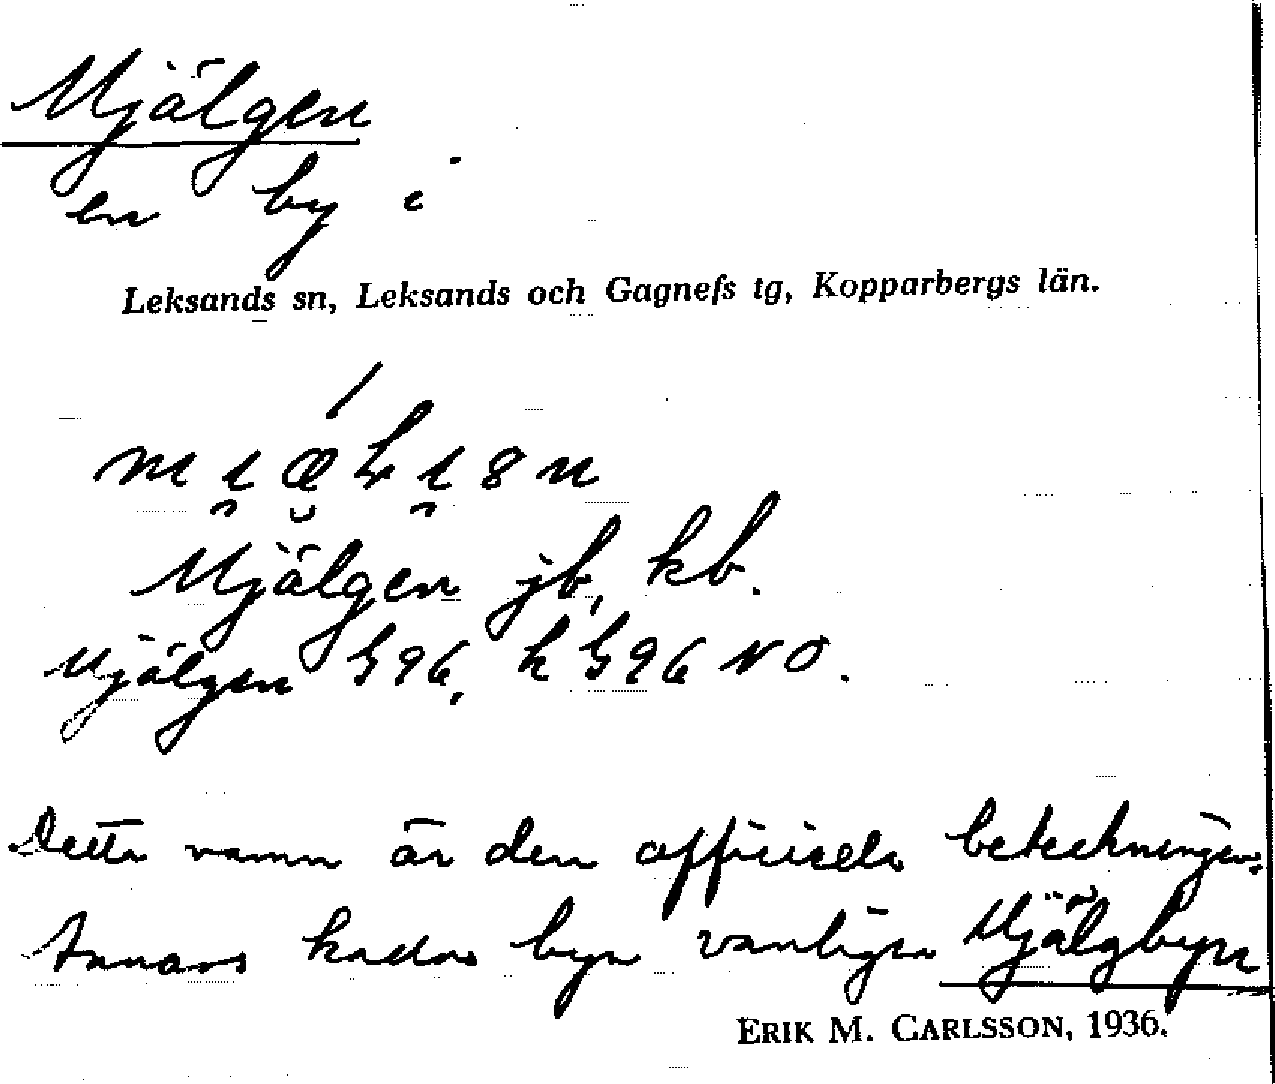 Mjälgen
en by i
Leksands sn, Leksands och Gagnefs tg, Kopparbergs län.
Mjälgen jb, kb.
Mjälgen G96, h G96 NO.
Detta namn är den officiela beteckningen.
Annars kallas byn vanligen Mjälgbyn
ERIK M. CARLSSON, 1936.